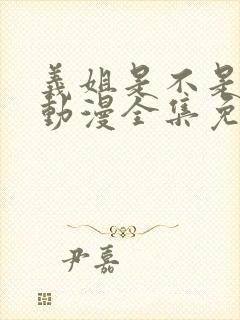 義姐是不是
動漫全集免
尹嘉